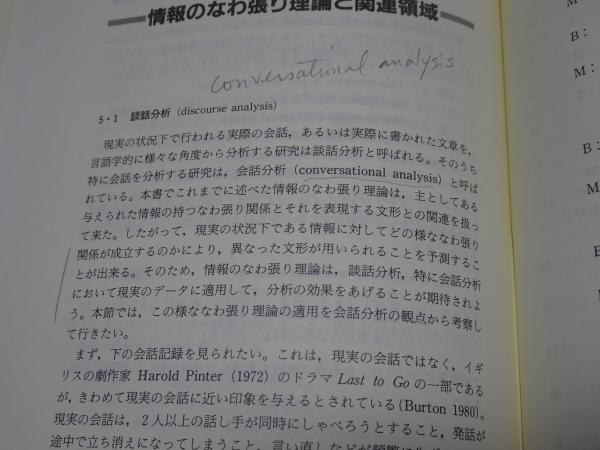 情報のなわ張り理論と関連領域
conversational analysis
5・1　談話分析 (discourse analysis)
現実の状況下で行われる実際の会話，あるいは実際に書かれた文章を，
言語学的に様々な角度から分析する研究は談話分析と呼ばれる。そのうち
特に会話を分析する研究は，会話分析 (conversational analysis) と呼ば
れている。本書でこれまでに述べた情報のなわ張り理論は，主としてある
与えられた情報の持つなわ張り関係とそれを表現する文形との関連を扱っ
て来た。したがって，現実の状況下である情報に対してどの様ななわ張り
関係が成立するのかにより，異なった文形が用いられることを予測するこ
とが出来る。そのため，情報のなわ張り理論は，談話分析，特に会話分析
において現実のデータに適用して，分析の効果をあげることが期待されよ
う。本節では，この様ななわ張り理論の適用を会話分析の観点から考察し
て行きたい。
まず，下の会話記録を見られたい。これは，現実の会話ではなく，イギ
リスの劇作家 Harold Pinter (1972) のドラマ Last to Go の一部である
が，きわめて現実の会話に近い印象を与えるとされている (Burton 1980)。
現実の会話は，2人以上の話し手が同時にしゃべろうとすること，発話が
途中で立ち消えになってしまうこと，言い直しなどが頻繁に
M：
B：
M：
B：
M
B
M
E